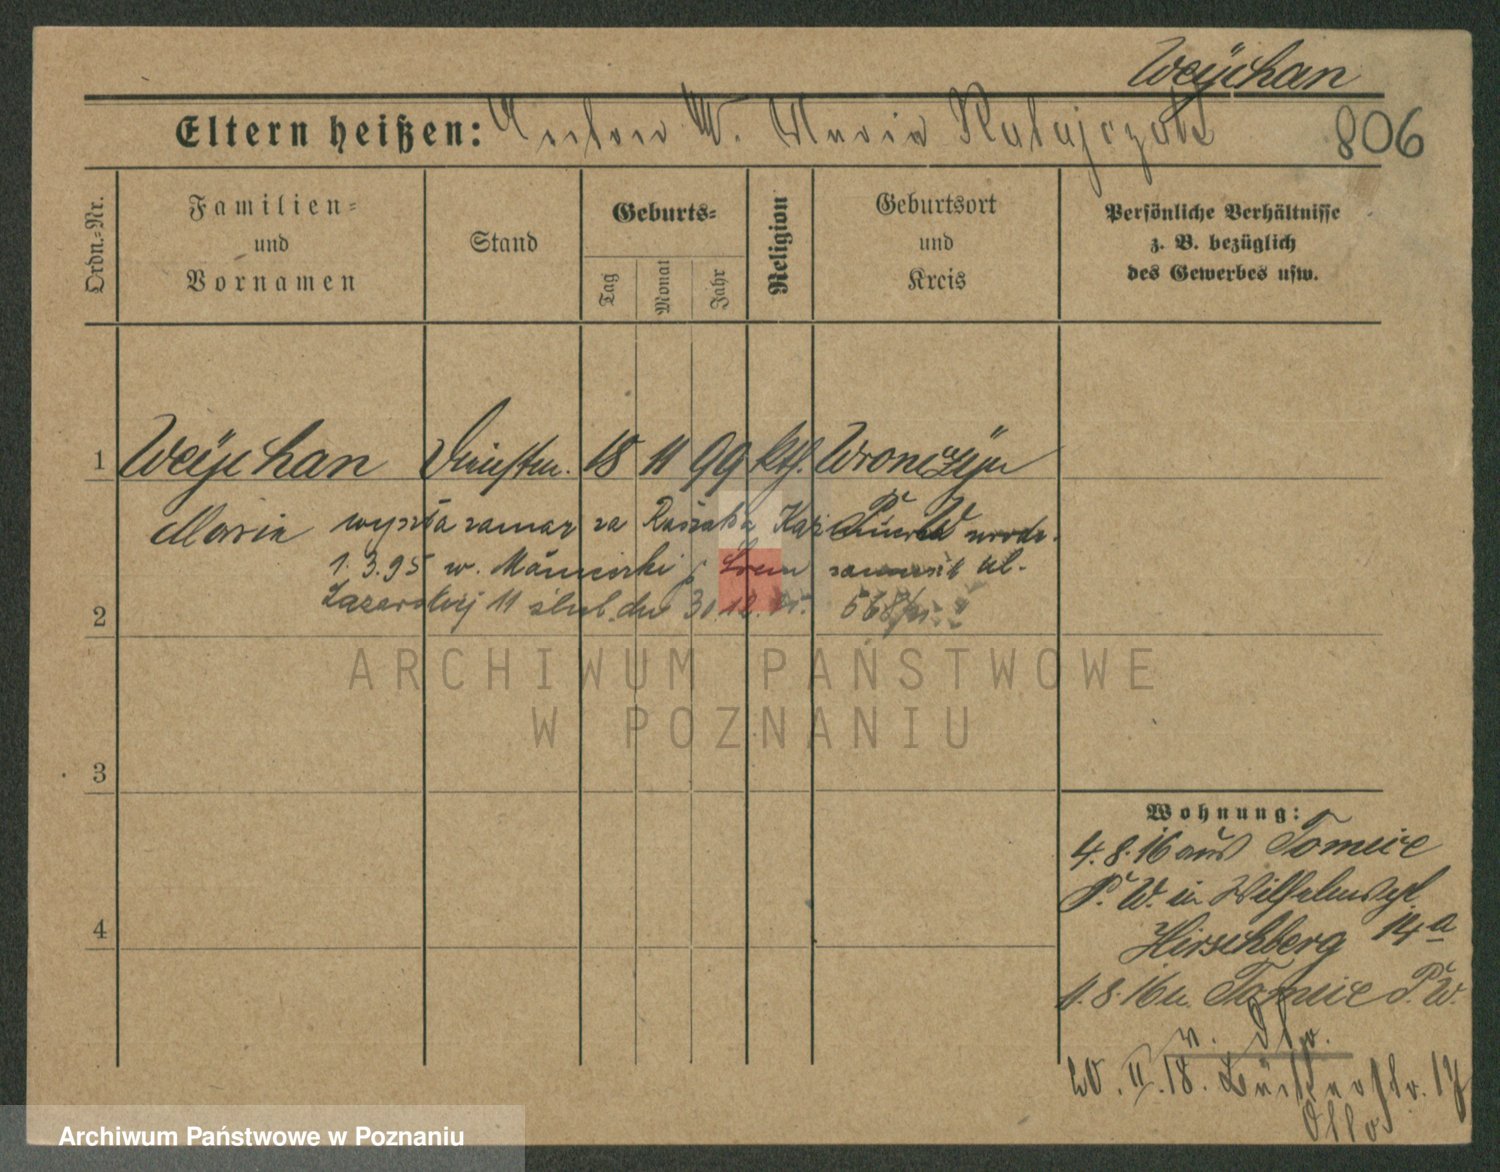 Weÿchan
Eltern heißen: Anton W. Maria Ratajczak
806
Ordn.=Nr.
Familien=
und
Vornamen
Stand
Geburts=
Tag
Monat
Jahr
Religion
Geburtsort
und
Kreis
Persönliche Verhältnisse
z. B. bezüglich
des Gewerbes usw.
1 Weÿchan 18 11 99 kth. Wronczÿn
Maria wyszła zamąż za Kaź
1.3.95 w. Śrem ul.
2 Łazarskiej 11 ślub dn 30.12.
ARCHIWUM PAŃSTWOWE
W POZNANIU
3
4
Wohnung:
4.8.16 aus Tomice
P. W. in
Hirschberg 14a
11.8.16 n. Tomice P. W.
20.II.18. 17
Archiwum Państwowe w Poznaniu